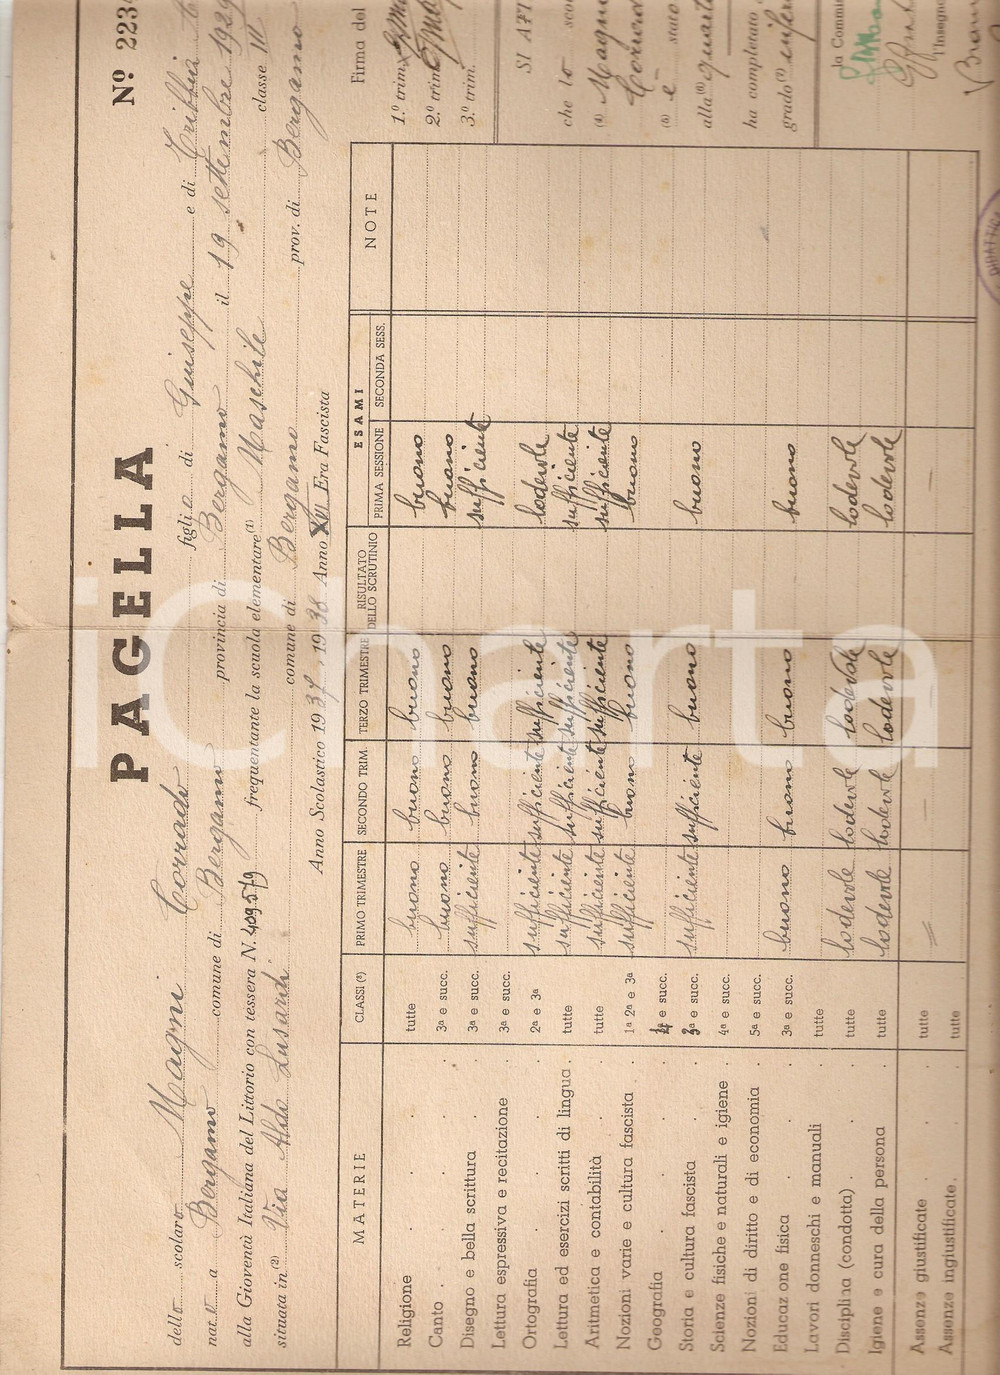 PAGELLA
Nº 223
dello scolaro Magni Corrado figlio di Giuseppe e di Tribbia
nato a Bergamo comune di Bergamo provincia di Bergamo il 19 settembre 1929
alla Gioventù Italiana del Littorio con tessera N. 409579 frequentante la scuola elementare (1) Maschile classe IV
situata in (2) Via Aldo Lusardi comune di Bergamo prov. di Bergamo
Anno Scolastico 1937, 1938 Anno XVI Era Fascista
MATERIE CLASSI (3) PRIMO TRIMESTRE SECONDO TRIM TERZO TRIMESTRE RISULTATO DELLO SCRUTINIO ESAMI PRIMA SESSIONE SECONDA SESS. NOTE
Religione tutte buono buono buono buono
Canto 3ª e succ. buono buono buono buono
Disegno e bella scrittura 3ª e succ. sufficiente buono buono sufficiente
Lettura espressiva e recitazione 3ª e succ.
Ortografia 2ª e 3ª sufficiente sufficiente sufficiente lodevole
Lettura ed esercizi scritti di lingua tutte sufficiente sufficiente sufficiente sufficiente
Aritmetica e contabilità tutte sufficiente sufficiente sufficiente sufficiente
Nozioni varie e cultura fascista 1ª 2ª e 3ª sufficiente buono buono buono
Geografia e succ.
Storia e cultura fascista 3ª e succ. sufficiente sufficiente buono buono
Scienze fisiche e naturali e igiene 4ª e succ.
Nozioni di diritto e di economia 5ª e succ.
Educazione fisica 3ª e succ. buono buono buono buono
Lavori donneschi e manuali tutte
Disciplina (condotta) tutte lodevole lodevole lodevole lodevole
Igiene e cura della persona tutte lodevole lodevole lodevole lodevole
Assenze giustificate tutte
Assenze ingiustificate tutte
Firma del
1.º trim.
2.º trim.
3.º trim.
SI ATT
che lo scol
(4) Magn
Corrad
(5) è stato
alla (6) quart
ha completato
grado (7) infer
la Commi
l'Insegn
DIDATTI
iCharta